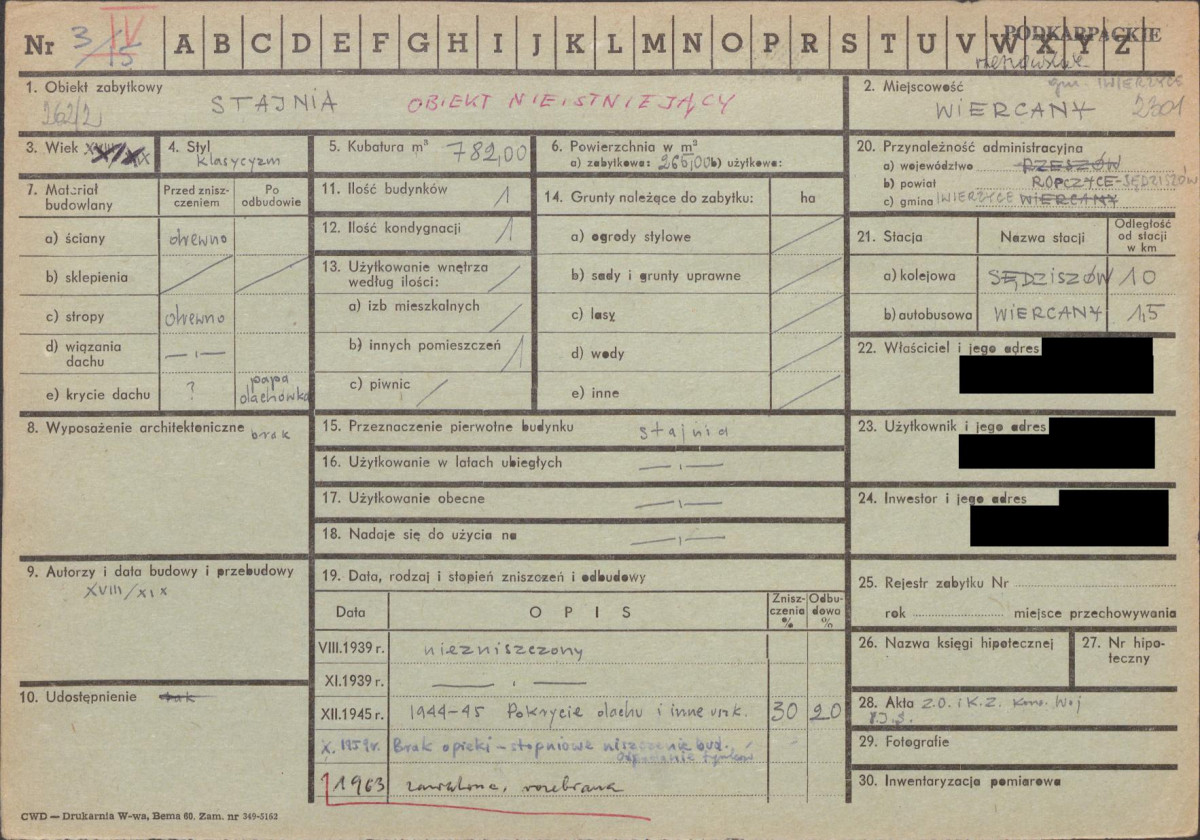 Nr 3/15 IV A B C D E F G H I J K L M N O P R S T U V W X Y Z
PODKARPACKIE
rzeszowskie
1. Obiekt zabytkowy
262/2
STAJNIA OBIEKT NIEISTNIEJĄCY
2. Miejscowość
gm. IWIERZYCE
WIERCANY 2301
3. Wiek XVIII/XIX
4. Styl
klasycyzm
5. Kubatura m³ 782,00
6. Powierzchnia w m²
a) zabytkowa: 265,00 b) użytkowa:
20. Przynależność administracyjna
a) województwo RZESZÓW
b) powiat ROPCZYCE-SĘDZISZÓW
c) gmina IWIERZYCE WIERCANY
7. Materiał budowlany
Przed zniszczeniem
Po odbudowie
a) ściany drewno
b) sklepienia
c) stropy drewno
d) wiązania dachu —"—
e) krycie dachu ? papa dachówka
11. Ilość budynków 1
12. Ilość kondygnacji 1
13. Użytkowanie wnętrza według ilości:
a) izb mieszkalnych
b) innych pomieszczeń 1
c) piwnic
14. Grunty należące do zabytku: ha
a) ogrody stylowe
b) sady i grunty uprawne
c) lasy
d) wody
e) inne
21. Stacja Nazwa stacji Odległość od stacji w km
a) kolejowa SĘDZISZÓW 10
b) autobusowa WIERCANY 1,5
22. Właściciel i jego adres
23. Użytkownik i jego adres
24. Inwestor i jego adres
8. Wyposażenie architektoniczne brak
15. Przeznaczenie pierwotne budynku stajnia
16. Użytkowanie w latach ubiegłych —"—
17. Użytkowanie obecne —"—
18. Nadaje się do użycia na —"—
9. Autorzy i data budowy i przebudowy
XVIII/XIX
10. Udostępnienie brak
19. Data, rodzaj i stopień zniszczeń i odbudowy
Data OPIS Zniszczenia % Odbudowa %
VIII.1939 r. niezniszczony
XI.1939 r. —"—
XII.1945 r. 1944-45 Pokrycie dachu i inne uszk. 30 20
X. 1959 r. Brak opieki – stopniowe niszczenie bud.
Odpadanie tynków
1963 zawalona, rozebrana
25. Rejestr zabytku Nr
rok miejsce przechowywania
26. Nazwa księgi hipotecznej
27. Nr hipoteczny
28. Akta Z.O. i K.Z. Kons. Woj
29. Fotografie
30. Inwentaryzacja pomiarowa
CWD — Drukarnia W-wa, Bema 60. Zam. nr 349-5162